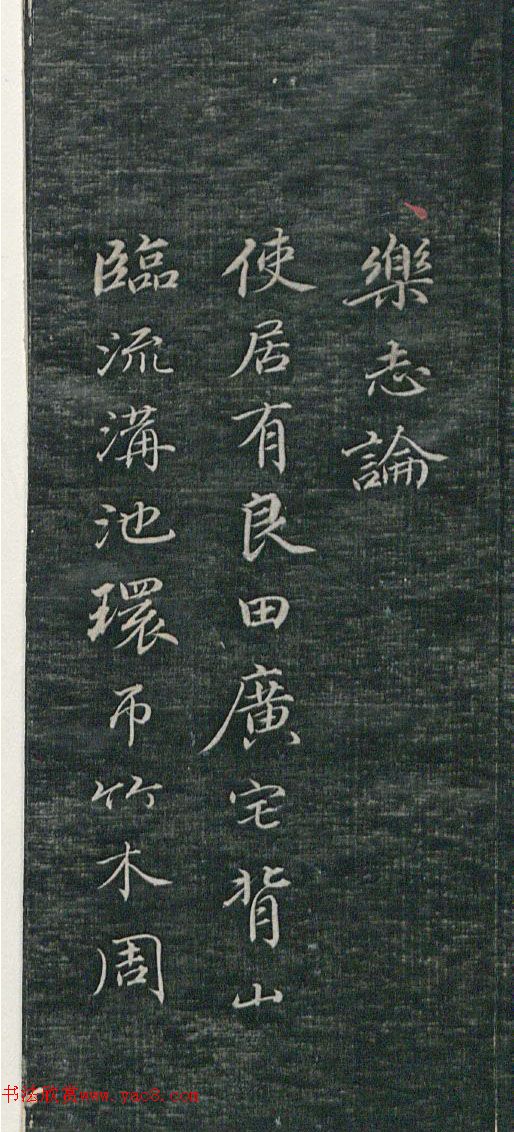 樂志論
使居有良田廣宅背山
臨流溝池環帀竹木周
书法欣赏www.yac8.com